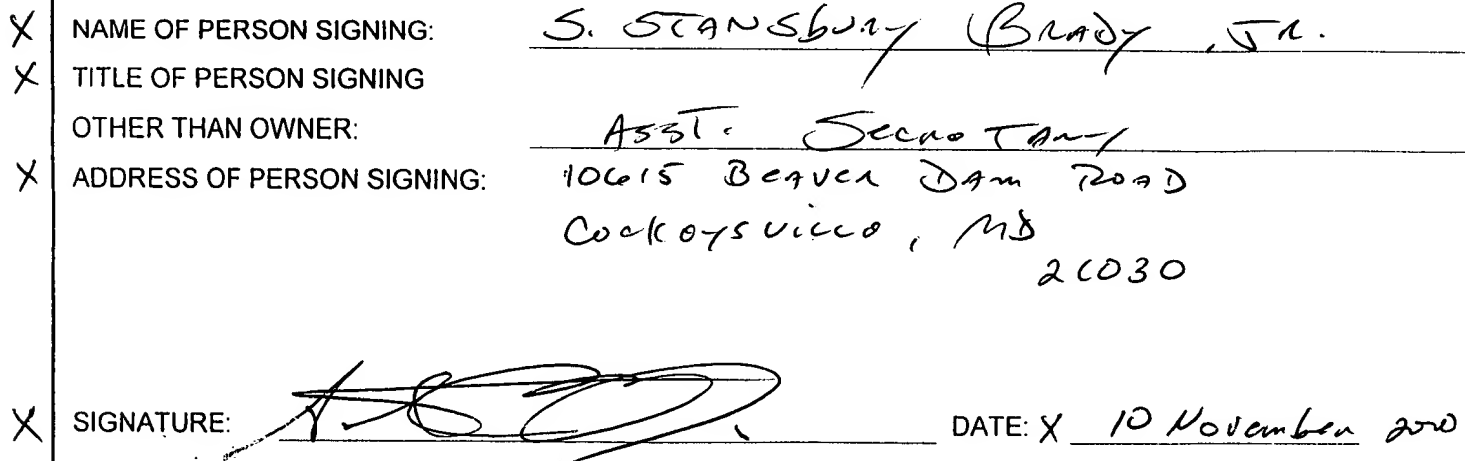 X NAME OF PERSON SIGNING: S. Stansbury Brady, Jr.
X TITLE OF PERSON SIGNING
OTHER THAN OWNER: Asst. Secretary
X ADDRESS OF PERSON SIGNING: 10615 Beaver Dam Road
Cockeysville, MD
21030
X SIGNATURE: DATE: X 10 November 2000